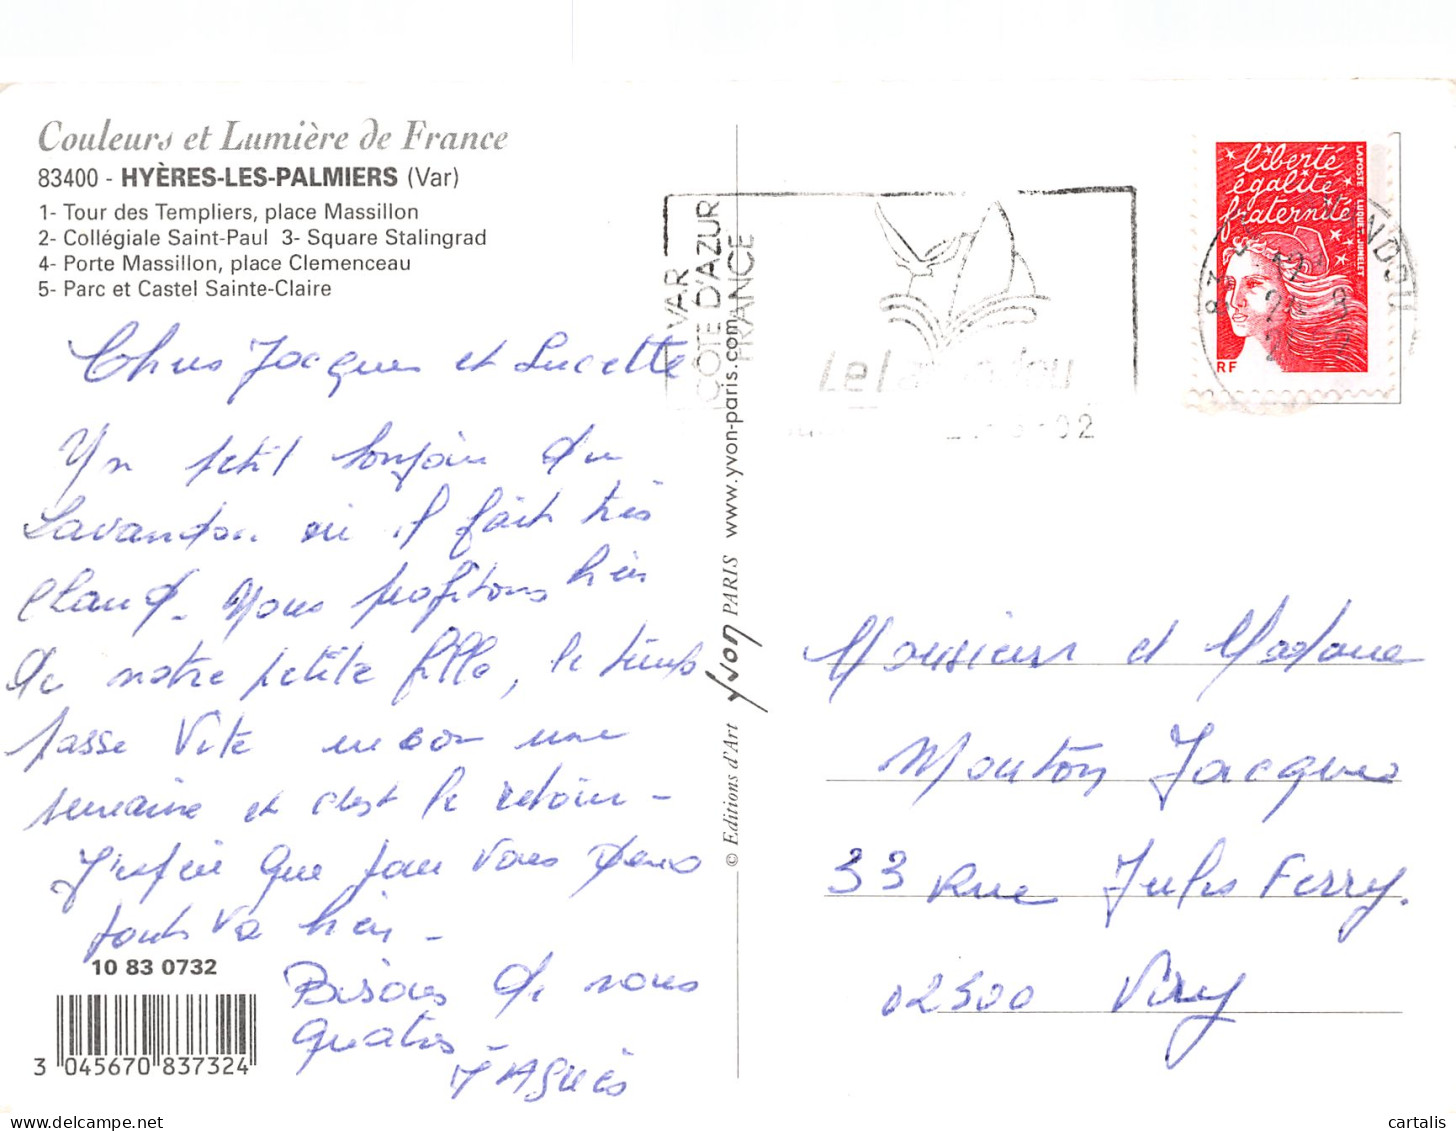 Couleurs et Lumière de France
83400 - HYÈRES-LES-PALMIERS (Var)
1- Tour des Templiers, place Massillon
2- Collégiale Saint-Paul 3- Square Stalingrad
4- Porte Massillon, place Clemenceau
5- Parc et Castel Sainte-Claire
Chers Jacques et Lucette
Un petit bonjour du
Lavandou où il fait très
chaud. Nous profitons bien
de notre petite fille, le temps
passe vite encore une
semaine et c'est le retour -
J'espère que pour vous deux
tout va bien -
Bisous de nous
quatre -
Agnès
10 83 0732
3 045670 837324
© Editions d'Art yvon PARIS www.yvon-paris.com
VAR
CÔTE D'AZUR
FRANCE
Le Lavandou
02
liberté
égalité
fraternité
LAPOSTE LUQUET-JUMELET
RF
Monsieur et Madame
Mouton Jacques
33 Rue Jules Ferry.
02300 Viry
cartalis